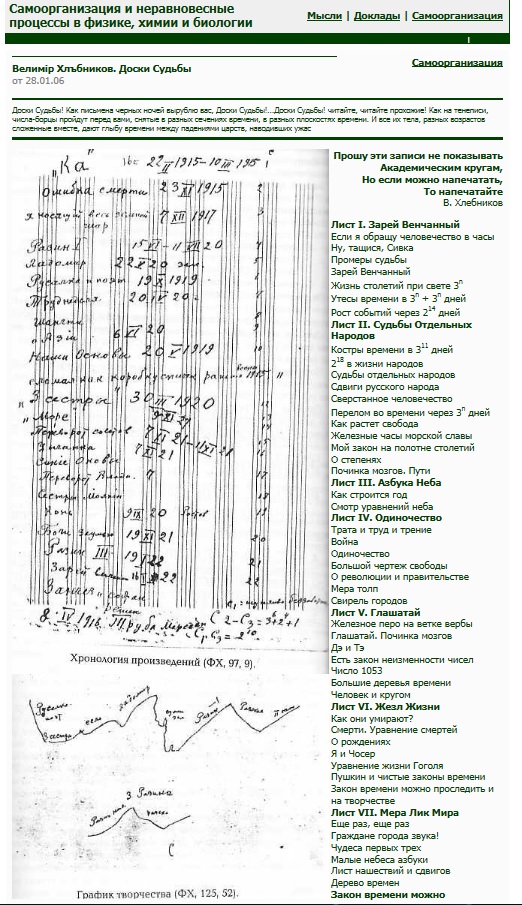 Самоорганизация и неравновесные
процессы в физике, химии и биологии
Мысли | Доклады | Самоорганизация
Велимiр Хлѣбников. Доски Судьбы
от 28.01.06
Самоорганизация
Доски Судьбы! Как письмена черных ночей вырублю вас, Доски Судьбы!...Доски Судьбы! читайте, читайте прохожие! Как на тенеписи,
числа-борцы пройдут перед вами, снятые в разных сечениях времени, в разных плоскостях времени. И все их тела, разных возрастов
сложенные вместе, дают глыбу времени между падениями царств, наводивших ужас
"Ка" 22 II 1915-10 III 1915
Ошибка смерти 23 XI 1915 2
7 XII 1917 3
Разин I 15 VI - 11 VII 20 4
Ладомир 22 V 20 5
19 X 1919 6
20 IV 20 7
Шангти 8
Азia 6 VI 20 9
Наши Основы 20 V 1919 10
"3 сестры" 30 III-1920 12
"Море"
Переворот советов 7 XI 21-11 XI 21
7 XI 21 15
16
7 17
18
Конь 9 IX 20 Ростов
19 XI 21 20
Разин III 19 I 22 21
22
Хронология произведений (ФХ, 97, 9).
3. Разина
График творчества (ФХ, 125, 52).
Прошу эти записи не показывать
Академическим кругам,
Но если можно напечатать,
То напечатайте
В. Хлебников
Лист I. Зарей Венчанный
Если я обращу человечество в часы
Ну, тащися, Сивка
Промеры судьбы
Зарей Венчанный
Жизнь столетий при свете 3ⁿ
Утесы времени в 3ⁿ + 3ⁿ дней
Рост событий через 2¹⁴ дней
Лист II. Судьбы Отдельных
Народов
Костры времени в 3¹¹ дней
2¹⁸ в жизни народов
Судьбы отдельных народов
Сдвиги русского народа
Сверстанное человечество
Перелом во времени через 3ⁿ дней
Как растет свобода
Железные часы морской славы
Мой закон на полотне столетий
О степенях
Починка мозгов. Пути
Лист III. Азбука Неба
Как строится год
Смотр уравнений неба
Лист IV. Одиночество
Трата и труд и трение
Война
Одиночество
Большой чертеж свободы
О революции и правительстве
Мера толп
Свирель городов
Лист V. Глашатай
Железное перо на ветке вербы
Глашатай. Починка мозгов
Дэ и Тэ
Есть закон неизменности чисел
Число 1053
Большие деревья времени
Человек и кругом
Лист VI. Жезл Жизни
Как они умирают?
Смерти. Уравнение смертей
О рождениях
Я и Чосер
Уравнение жизни Гоголя
Пушкин и чистые законы времени
Закон времени можно проследить и
на творчестве
Лист VII. Мера Лик Мира
Еще раз, еще раз
Граждане города звука!
Чудеса первых трех
Малые небеса азбуки
Лист нашествий и сдвигов
Дерево времен
Закон времени можно